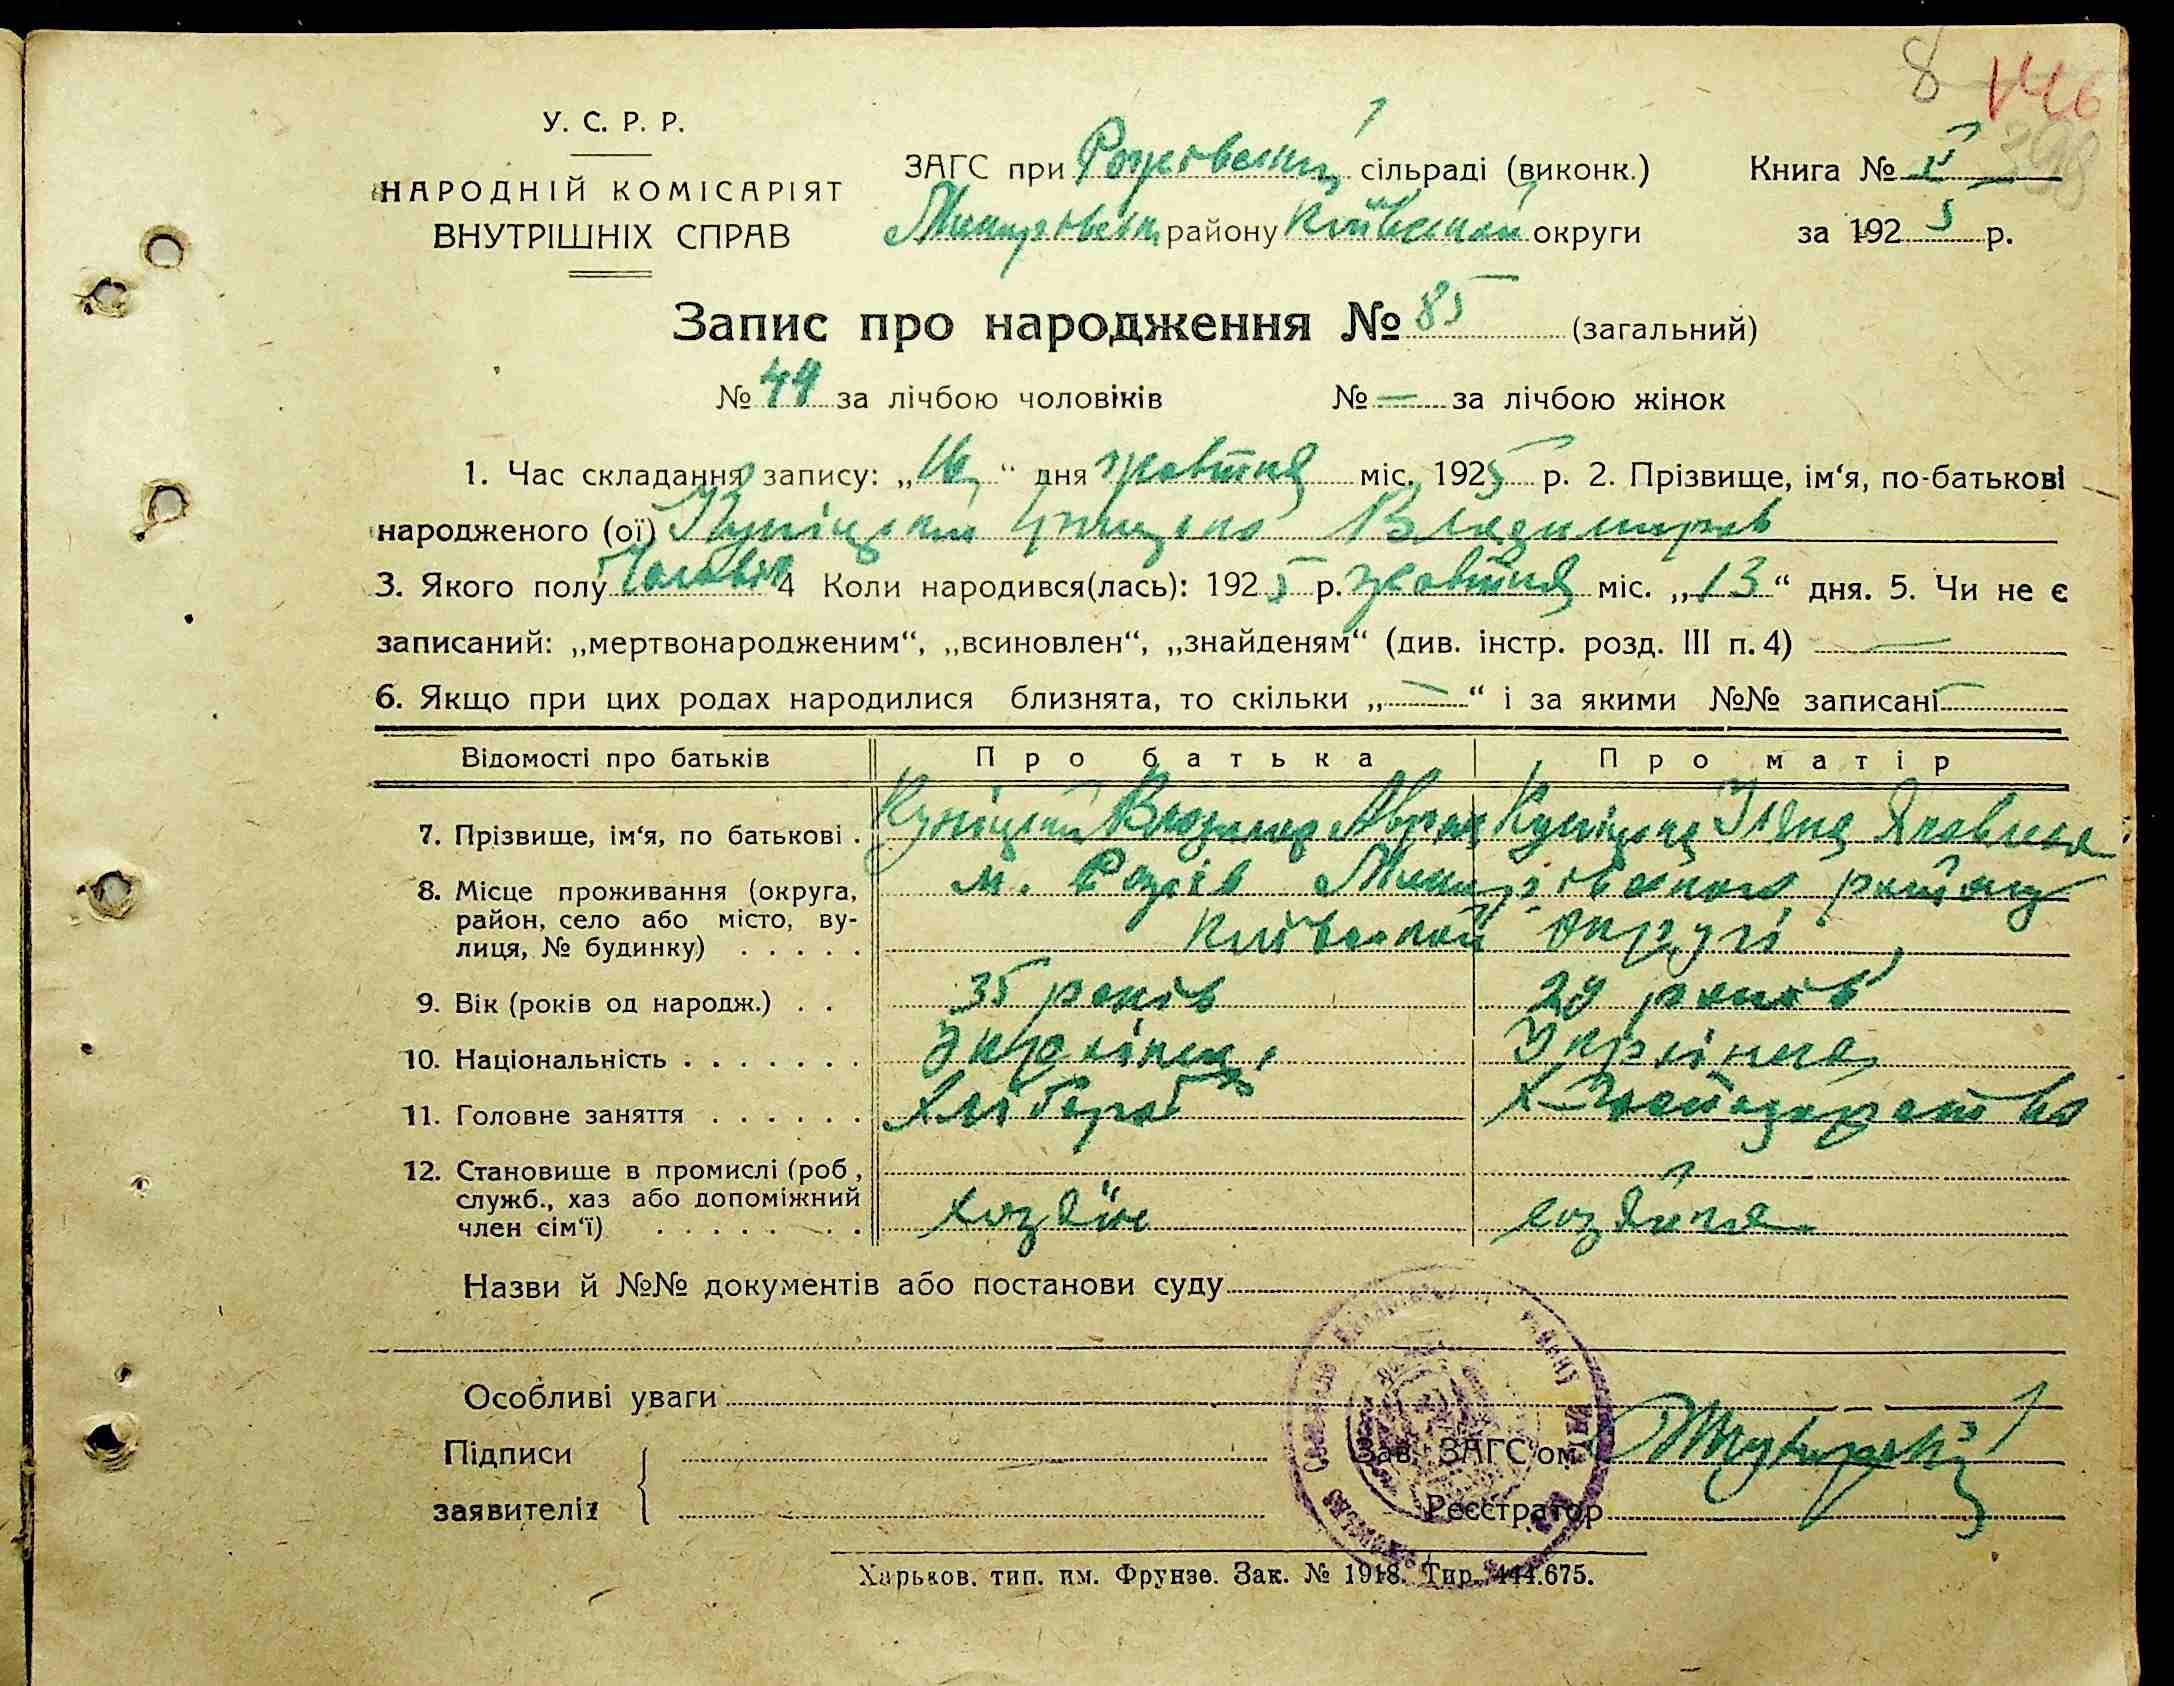 8 146
398
У. С. Р. Р.
НАРОДНІЙ КОМІСАРІЯТ
ВНУТРІШНІХ СПРАВ
ЗАГС при сільраді (виконк.)
Книга № II
району Київської округи
за 1925 р.
Запис про народження № 85 (загальний)
№ 44 за лічбою чоловіків № — за лічбою жінок
1. Час складання запису: „16“ дня жовтня міс. 1925 р. 2. Прізвище, ім‘я, по-батькові
народженого (ої) Куніцький Владимиров
3. Якого полу Чоловік 4 Коли народився(лась): 1925 р. жовтня міс. „13“ дня. 5. Чи не є
записаний: „мертвонародженим“, „всиновлен“, „знайденям“ (див. інстр. розд. III п. 4) —
6. Якщо при цих родах народилися близнята, то скільки „—“ і за якими №№ записані —
Відомості про батьків Про батька Про матір
7. Прізвище, ім‘я, по батькові . Куніцький Куніцька Яковлена
8. Місце проживання (округа,
район, село або місто, ву-
лиця, № будинку) . . . . .
м. району
Київської округі
9. Вік (років од народж.) . . 35 років 29 років
10. Національність . . . . . . . Українець Українка
11. Головне заняття . . . . . . Хлібороб
12. Становище в промислі (роб,
служб., хаз або допоміжний
член сім‘ї) . . . . . . .
хозяїн хозяйка
Назви й №№ документів або постанови суду
Особливі уваги
Підписи
заявителів
Зав. ЗАГС‘ом
Реєстратор
Харьков. тип. им. Фрунзе. Зак. № 1918. Тир. 444.675.